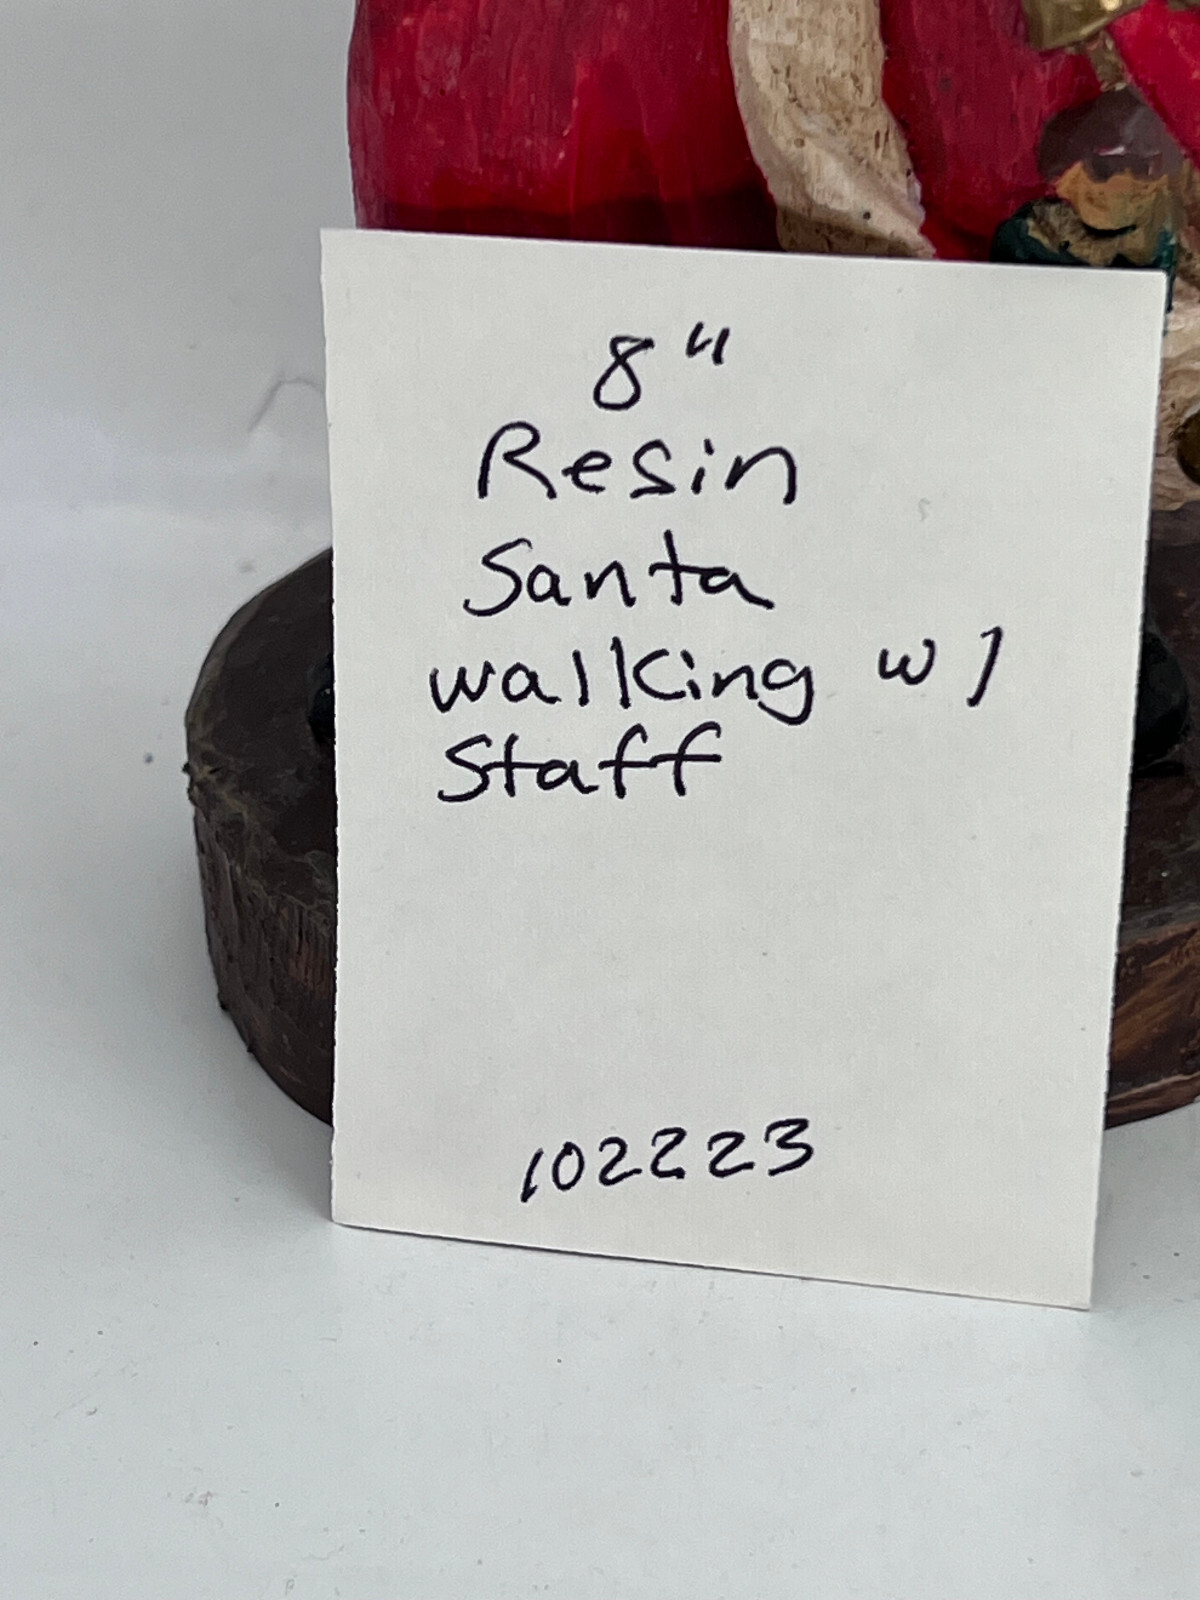 8"
Resin
Santa
walking w/
Staff
102223